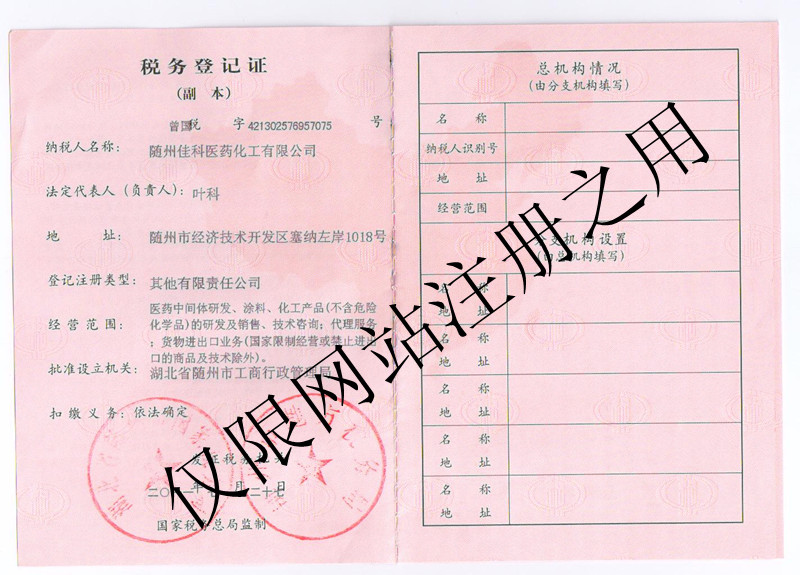 税务登记证
(副 本)
曾国税 字 421302576957075 号
纳税人名称: 随州佳科医药化工有限公司
法定代表人(负责人): 叶科
地 址: 随州市经济技术开发区塞纳左岸1018号
登记注册类型: 其他有限责任公司
经营范围: 医药中间体研发、涂料、化工产品(不含危险
化学品)的研发及销售、技术咨询;代理服务
;货物进出口业务(国家限制经营或禁止进出
口的商品及技术除外)。
批准设立机关: 湖北省随州市工商行政管理局
扣缴义务: 依法确定
发证税务机关
年 月二十七日
国家税务总局监制
总机构情况
(由分支机构填写)
名 称
纳税人识别号
地 址
经营范围
分支机构设置
(由总机构填写)
名 称
地 址
名 称
地 址
名 称
地 址
名 称
地 址
名 称
地 址
仅限网站注册之用